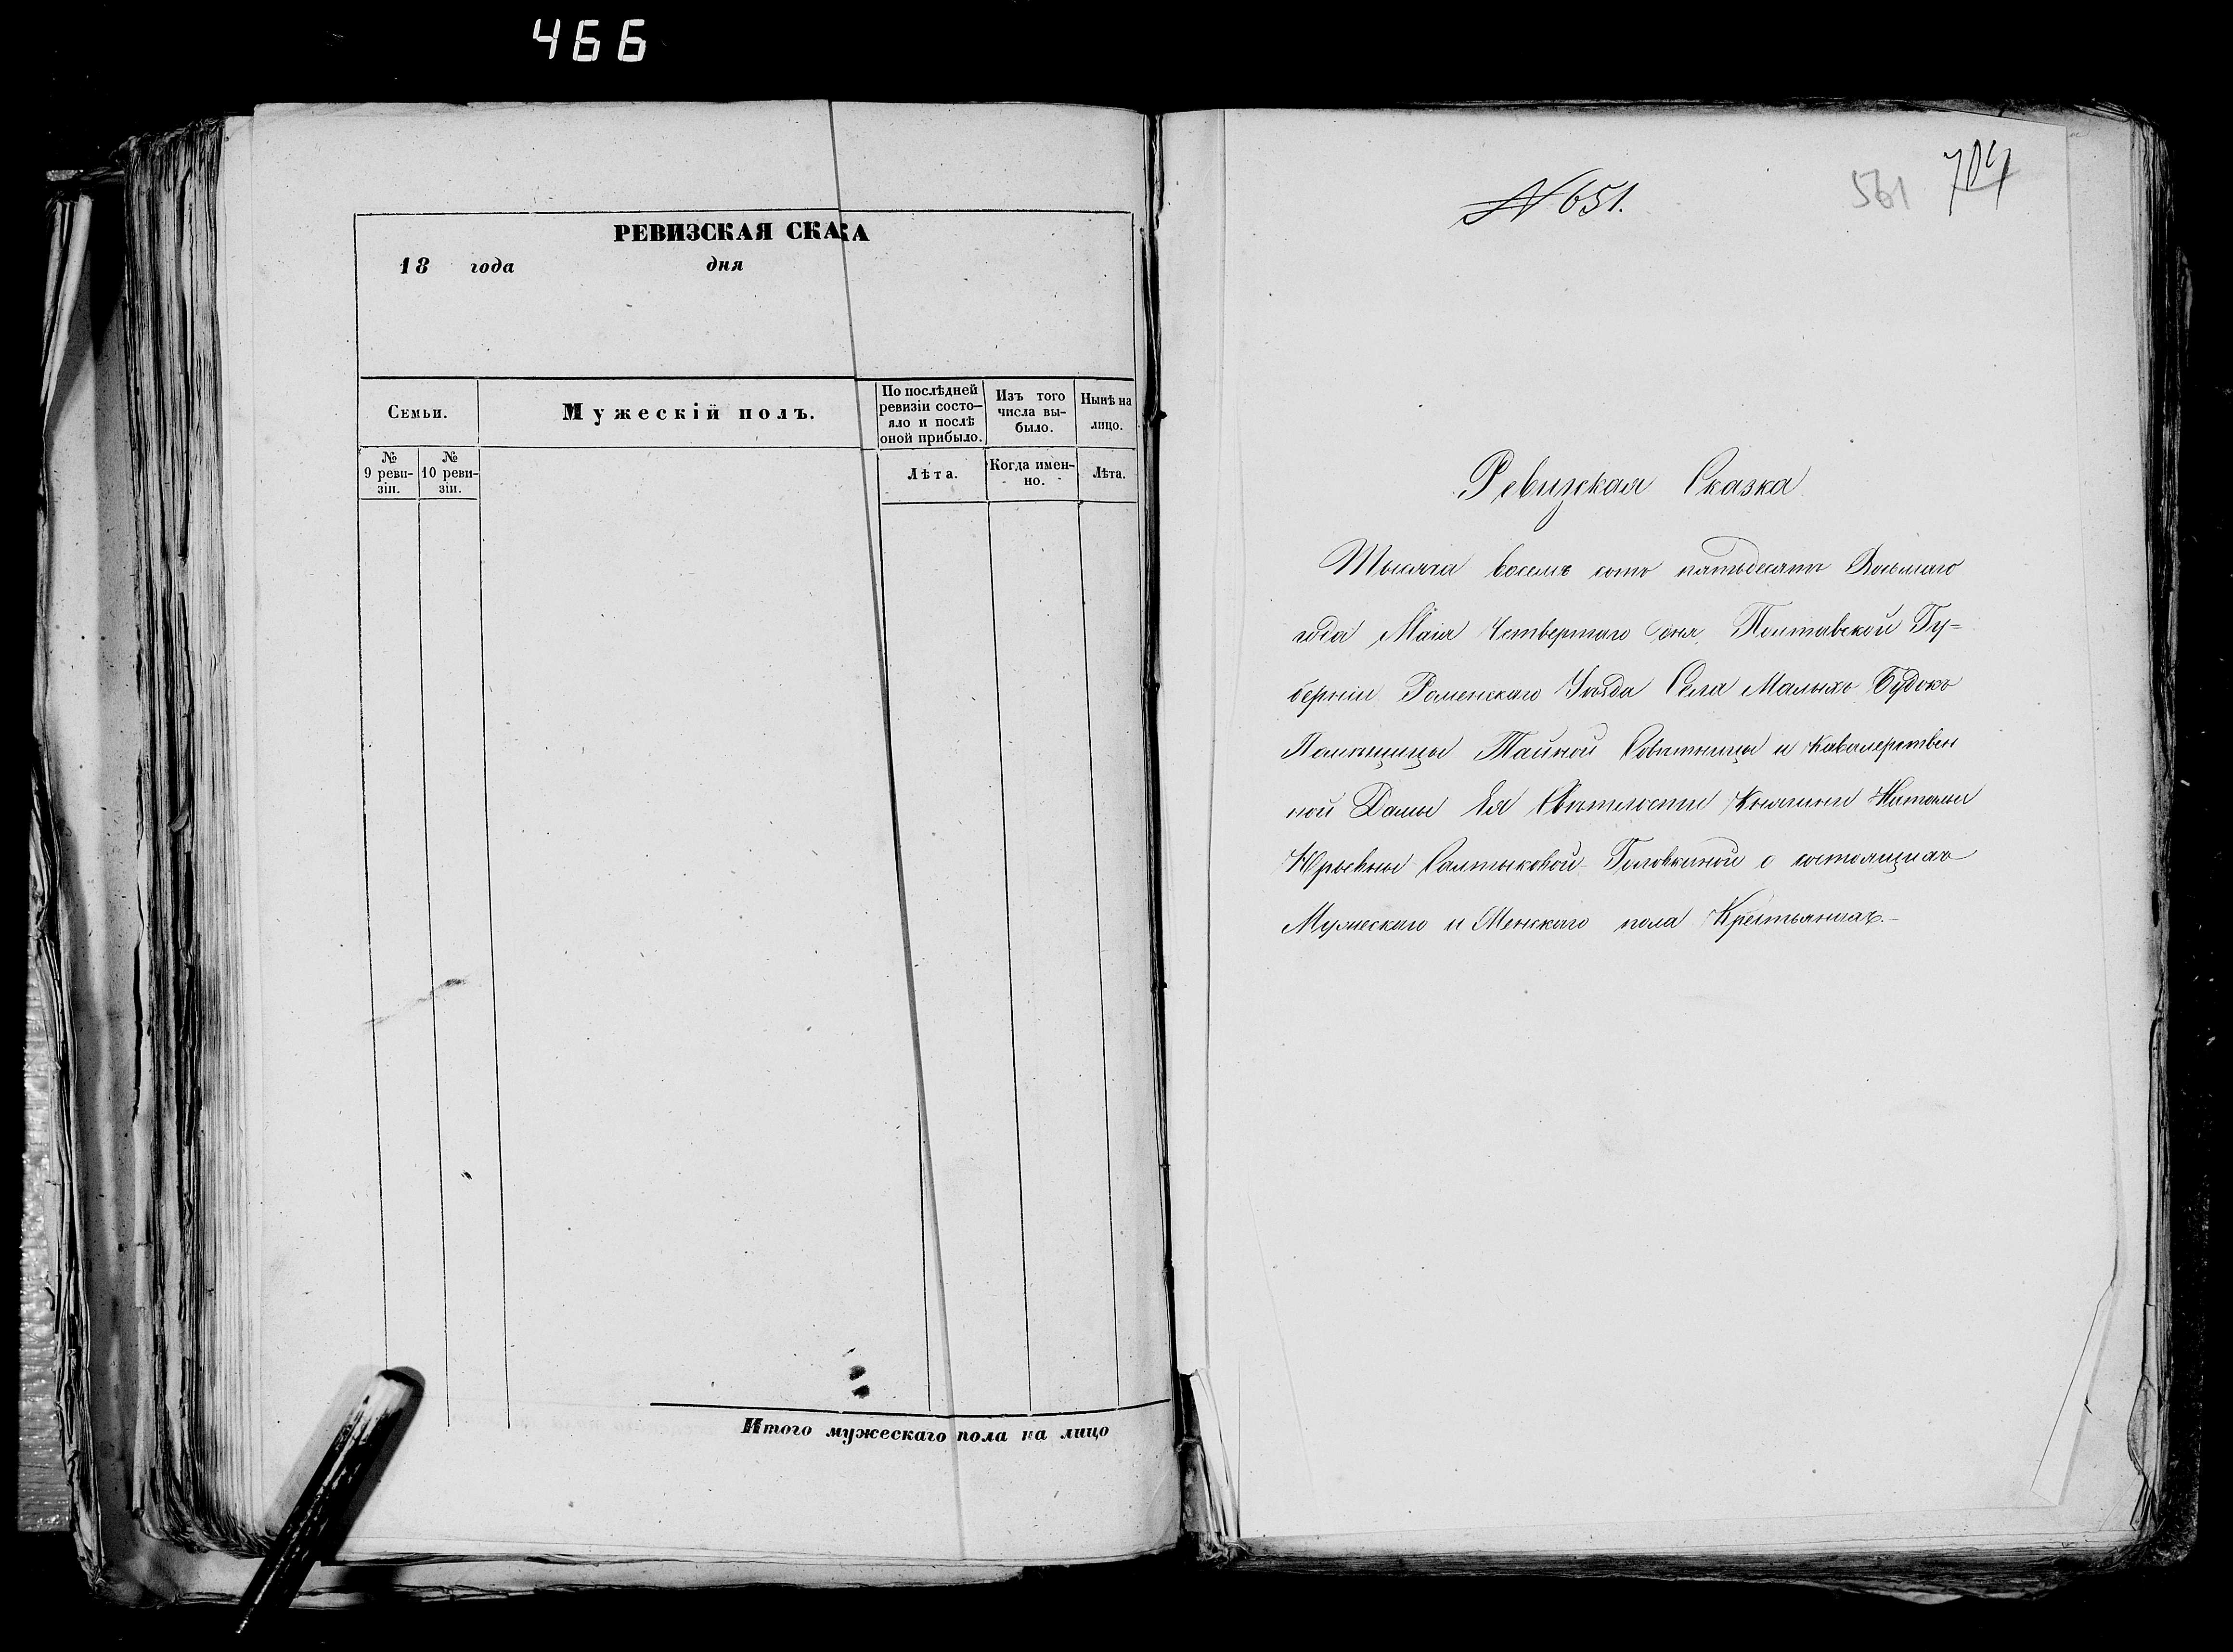 466
РЕВИЗСКАЯ СКАЗКА
18 года дня
Семьи.
Мужескій полъ.
По послѣдней ревизіи состо-
яло и послѣ
оной прибыло.
Изъ того
числа вы-
было.
Нынѣ на
лицо.
№
9 реви-
зіи.
№
10 реви-
зіи.
Лѣта.
Когда имен-
но.
Лѣта.
Итого мужескаго пола на лицо
№ 651.
561
Ревизская Сказка
Тысяча восемь сотъ пятьдесятъ Восьмаго
года Маія Четвертаго дня, Полтавской Гу=
берніи Роменскаго Уѣзда Села Малыхъ Будокъ
Помѣщицы Тайной Совѣтницы и Кавалерствен
ной Дамы Ея Свѣтлости Княгини Натальи
Юрьевны Салтыковой-Головкиной о состоящихъ
Мужескаго и Женскаго пола Крестьянахъ.-